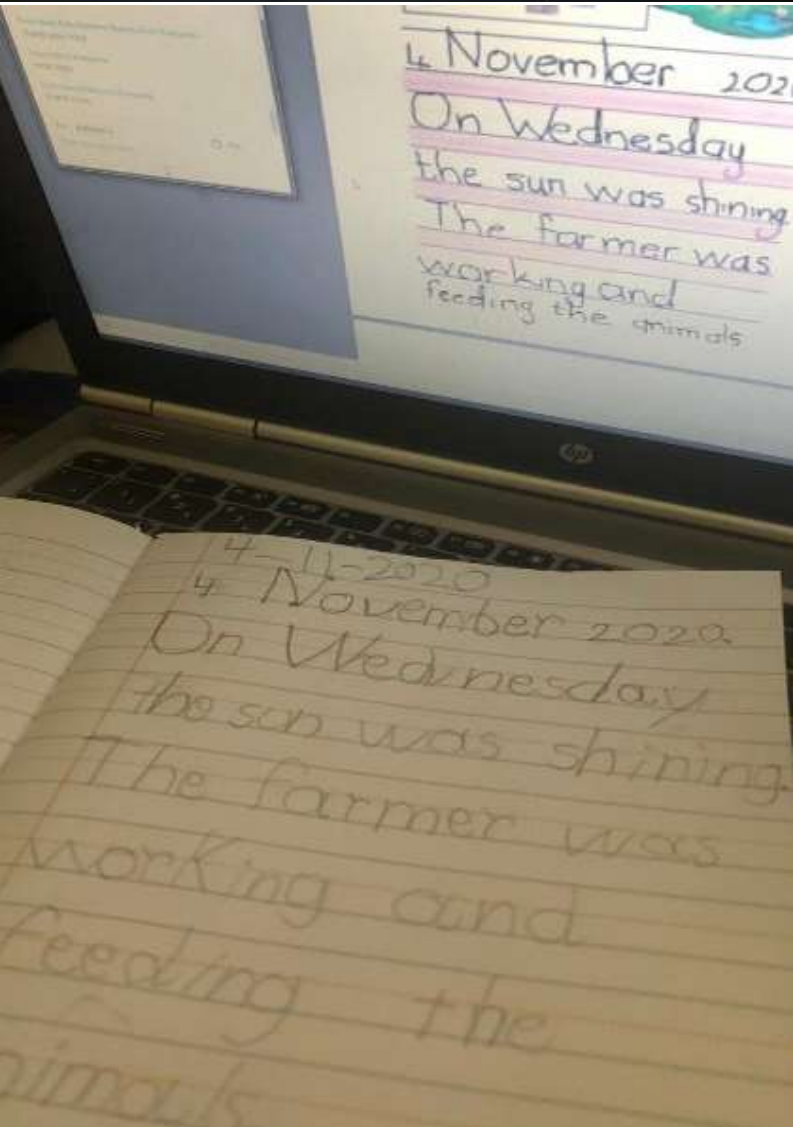 4 November 202
On Wednesday
the sun was shining
The farmer was
working and
feeding the animals
hp
4-11-2020
4 November 2020.
On Wednesday
the sun was shining.
The farmer was
working and
feeding the
nimals